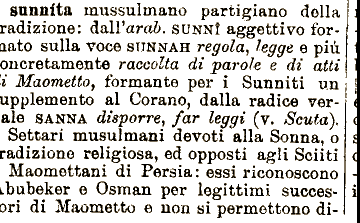 sunnita mussulmano partigiano della
radizione: dall'arab. SUNNÎ aggettivo for-
nato sulla voce SUNNAH regola, legge e più
oncretamente raccolta di parole e di atti
i Maometto, formante per i Sunniti un
upplemento al Corano, dalla radice ver-
ale SANNA disporre, far leggi (v. Scuta).
Settari musulmani devoti alla Sonna, o
radizione religiosa, ed opposti agli Sciiti
Maomettani di Persia: essi riconoscono
Abubeker e Osman per legittimi succes-
ori di Maometto e non si permettono di-